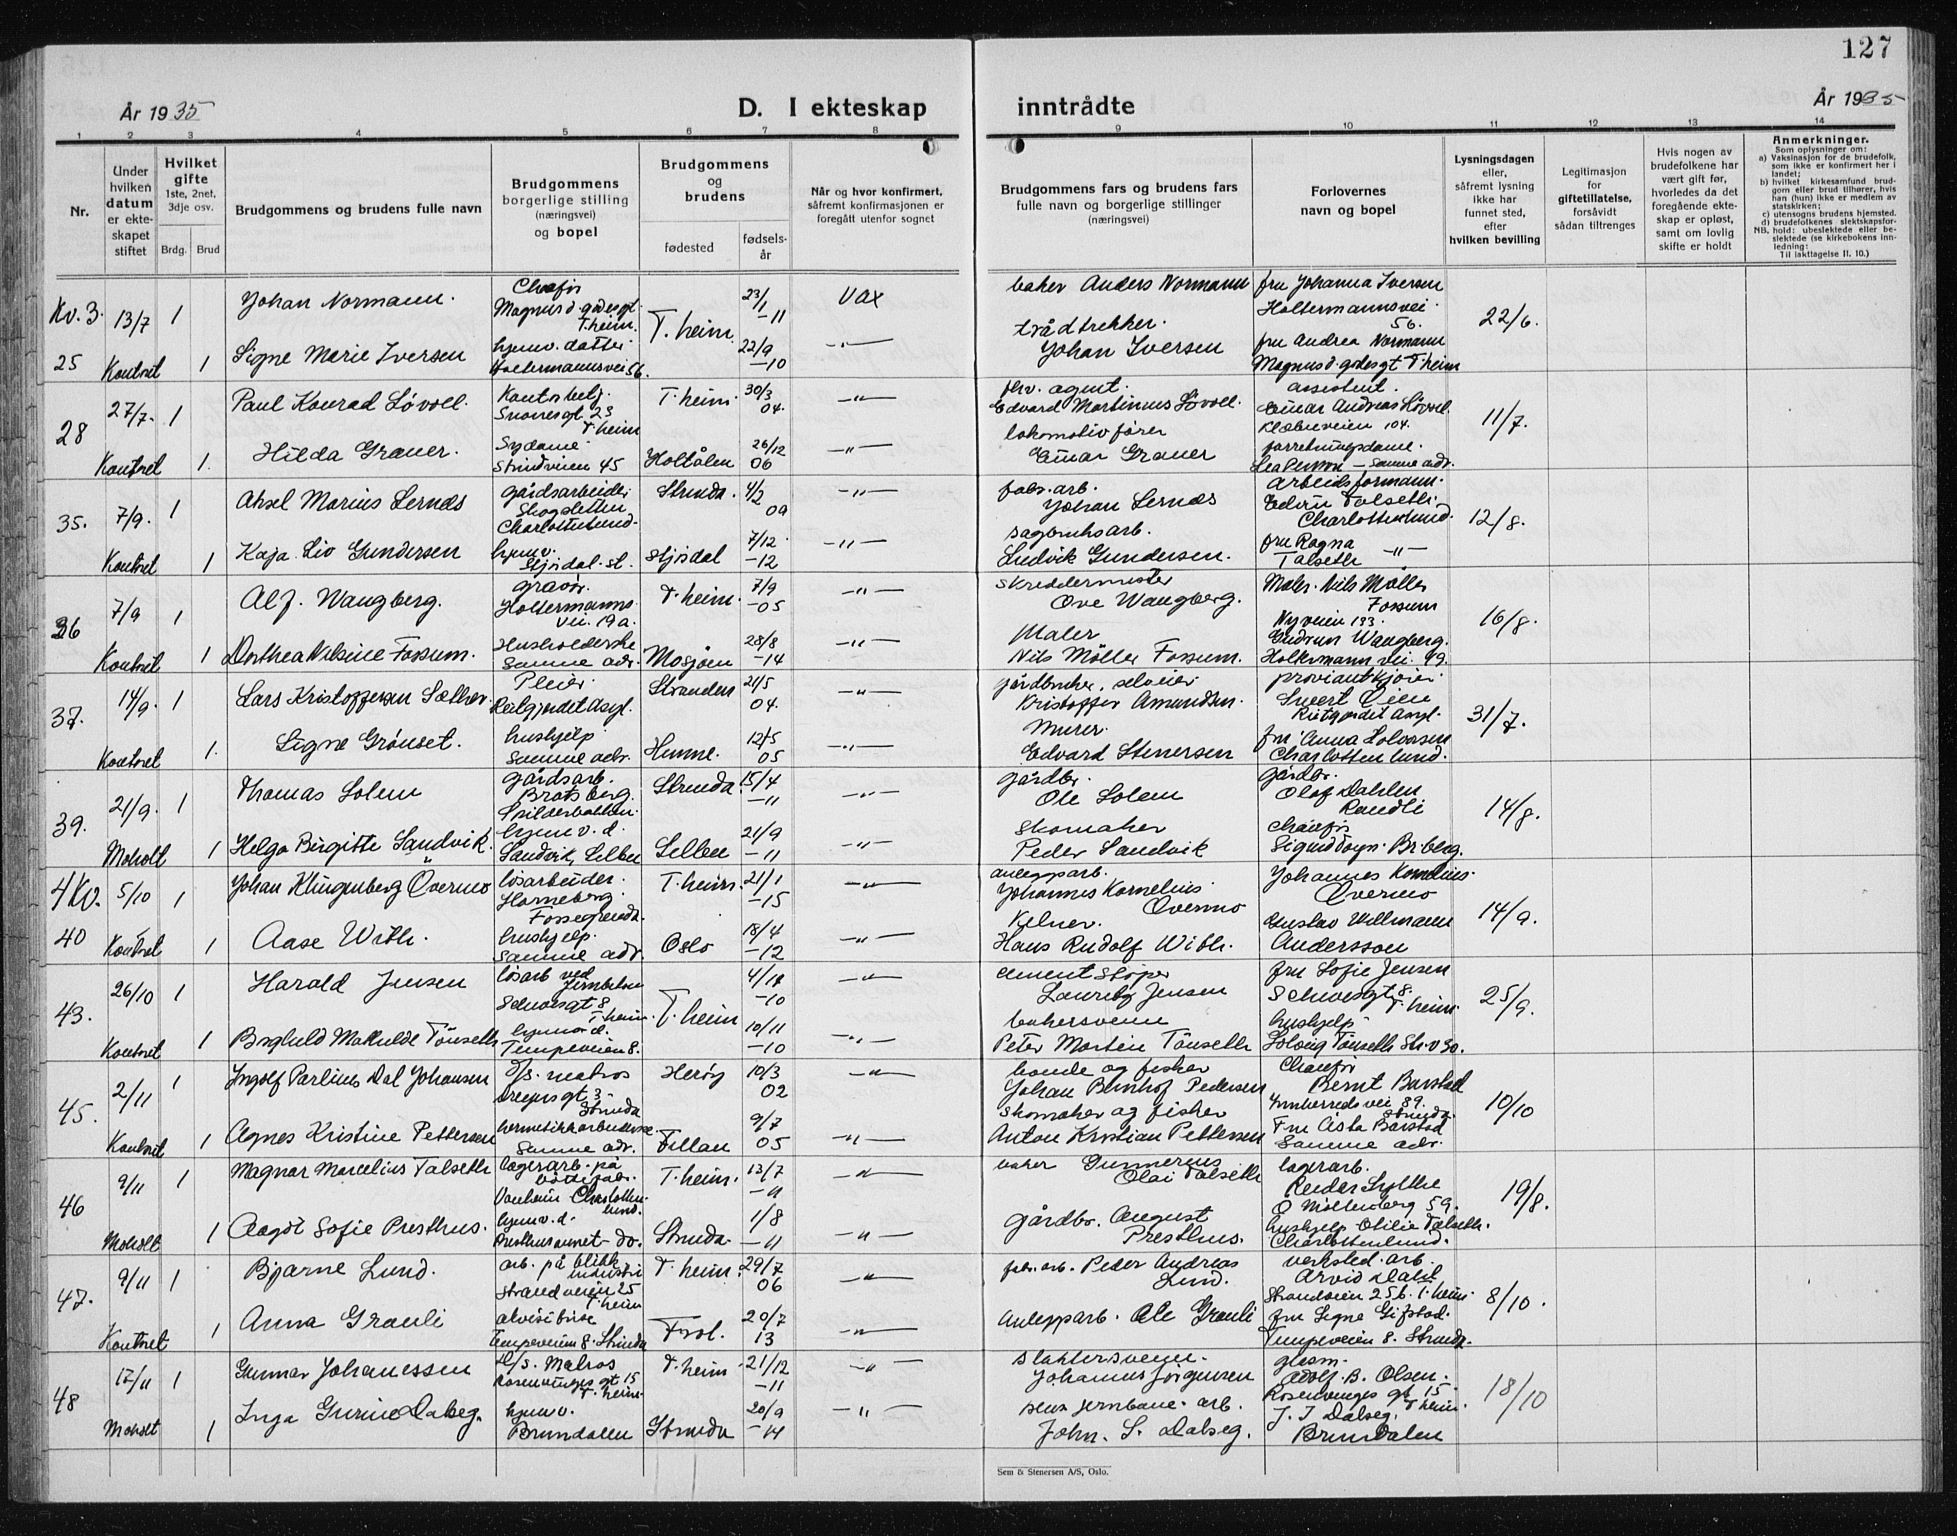 127
År 1935
D. I ekteskap inntrådte
År 1935
1 2 3 4 5 6 7 8 9 10 11 12 13 14
Nr.
Under hvilken datum er ekteskapet stiftet
Hvilket gifte
1ste, 2net, 3dje osv.
Brdg. Brud
Brudgommens og brudens fulle navn
Brudgommens borgerlige stilling (næringsvei) og bopel
Brudgommens og brudens
fødested
fødselsår
Når og hvor konfirmert, såfremt konfirmasjonen er foregått utenfor sognet
Brudgommens fars og brudens fars fulle navn og borgerlige stillinger (næringsvei)
Forlovernes navn og bopel
Lysningsdagen eller, såfremt lysning ikke har funnet sted, efter hvilken bevilling
Legitimasjon for giftetillatelse, forsåvidt sådan tiltrenges
Hvis nogen av brudefolkene har vært gift før, hvorledes da det foregående ekteskap er opløst, samt om lovlig skifte er holdt
Anmerkninger.
Som oplysninger om:
a) Vaksinasjon for de brudefolk, som ikke er konfirmert her i landet;
b) hvilket kirkesamfund brudgom eller brud tilhører, hvis han (hun) ikke er medlem av statskirken;
c) utensogns brudens hjemsted.
d) brudefolkenes slektskapsforhold: ubeslektede eller beslektede (se kirkebokens innledning:
NB.
Til iakttagelse II. 10.)
Kv. 3. 13/7 1 Johan Normann. Magnus d. godesgt. T.heim. T.heim 23/1 -11 Vax baker Anders Normann fru Johanna Iversen Holtermannsvei 56. 22/6.
25 Kontret 1 Signe Marie Iversen hjemv. datter Holtermannsvei 56. 22/9 -10 -"- trådtrekker. Johan Iversen fru Andrea Normann Magnus d. godesgt T.heim
28 27/7. 1 Paul Konrad Løvoll. Snorresgt. 23 T.heim T.heim. 30/3 04. -"- fhv. agent. Edvard Martinus Løvoll. assistent. Einar Andreas Løvoll. Klæbuveien 104. 11/7.
Kontret 1. Hilda Graner. Sydame. Strindveien 45 Holtålen 26/12 06 -"- lokomotivfører Einar Graner forretningsdame. samme adr.
35. 7/9. 1 Aksel Marius Lernæs gårdsarbeider Skogsletten Charlottenlund. Strinda. 4/2 09 -"- fabr. arb. Johan Lernæs arbeidsformann. Talseth. Charlottenlund. 12/8.
Kontret 1 Kaja Liv Gundersen hjemv. Stjørdal. st. Stjørdal 7/12. -12 -"- sagbruksarb. Ludvik Gundersen. fru Ragna Talseth -"-
36 7/9 1 Alf. Wangberg. gravør. Holtermanns vei. 19a. T.heim. 7/9 -05 -"- skreddermester Ove Wangberg. Maler. Nils Møller Fossum Nyveien 133. 16/8.
Kontret 1 Dorthea Nilsine Fossum. Husholderske samme adr. Mosjøen 28/8 -14 -"- Maler Nils Møller Fossum. Gudrun Wangberg. Holterman vei. 49.
37. 14/9. 1 Lars Kristoffersen Sæther. Pleier. Reitgjerdet Asyl. Stranden 21/5 04. -"- gårdbruker, selveier Kristoffer Amundsen. proviantkjører. Sivert Øien Reitgjerdet Asyl. 31/7.
Kontret 1. Signe Grønset. hushjelp samme adr. Hemne. 12/5 05 -"- Murer. Edvard Stenersen fru Anna Halvorsen Charlottenlund.
39. 21/9. 1 Thomas Solem gårdsarb. Bratsberg. Strinda 15/4 -11 -"- gårdbr. Ole Solem gårdbr. Olaf Dahlen Randli 14/8.
Moholt 1 Helga Birgitte Sandvik. hjemv. d. Sandvik, Selbu Selbu 21/9 -11 -"- Skomaker Peder Sandvik
4 Kv. 5/10 1 Johan Klingenberg Overmo løsarbeider. Harneberg Fossegrenda. T.heim. 21/1 -15 -"- anleggsarb. Johannes Kornelius Overmo Johannes Kornelius. Overmo 14/9.
40 Kontret 1 Aase With. hushjelp. samme adr. Oslo 18/4 -12 -"- Kelner. Hans Rudolf With. Gustav Willmann Andersson
43. 26/10 1 Harald Jensen løsarb ved Jernbetong 8 T.heim. T.heim -10 -"- cementstøper Lauritz Jensen fru Sofie Jensen 8. T.heim. 25/9.
Kontret 1 Borghild Mathilde Tønseth hjemv. d. Tempeveien 8. 10/11 -10 -"- bakersvenn Peter Martin Tønseth hushjelp Solveig Tønseth
45. 2/11 1 Ingolf Parlius Dal Johansen matros Strinda Herøy 10/3 02 -"- bonde og fisker Johan Bernhof Pedersen Bernt Barstad Innherredsvei 89. Strinda. 10/10
Kontret 1 Agnes Kristine Pettersen hermetikkarbeiderske. Samme adr. Fillan 9/7 05 -"- skomaker og fisker Anton Kristian Pettersen Fru Åsta Barstad Samme adr.
46 9/11 1 Magnar Marcelius Talseth lagerarb. på Charlottenlund. T.heim. 13/7 -11 -"- baker Gunnerius Olai Talseth lagerarb. Reidar 59. 19/8.
Moholt 1 Aagot Sofie Presthus. hjemv. d. do. Strinda 1/8 -11 -"- gårdbr. August Presthus. hushjelp Otilie Talseth. Charlottenlund.
47. 9/11 1 Bjarne Lund. arb. på blikk industri Strandveien 25 T.heim T.heim. 29/7 06 -"- fabr. arb. Peder Andreas Lund. verksted. arb. Arvid Dahl Strandveien 25b. T.heim. 8/10.
Kontret 1 Anna Grauli Tempeveien 8. Strinda Frol. 20/7 13 -"- Anleggsarb. Ole Grauli fru Signe Gifstad. Tempeveien 8. Strinda.
48 17/11 1 Gunnar Johanessen D/s. Matros Rosenborges gt 15 T.heim. T.heim 21/12 -11 -"- slaktersvenn. Johannes Jørgensen glasm. Adolf. B. Olsen. gt 15. T.heim. 18/10
Moholt 1 Inga Gurine Dalseg. hjemv. Brundalen Strinda 20/9 -14 -"- jernbane. arb. John. S. Dalseg. J. I Dalseg. Brundalen
Sem & Stenersen A/S, Oslo.